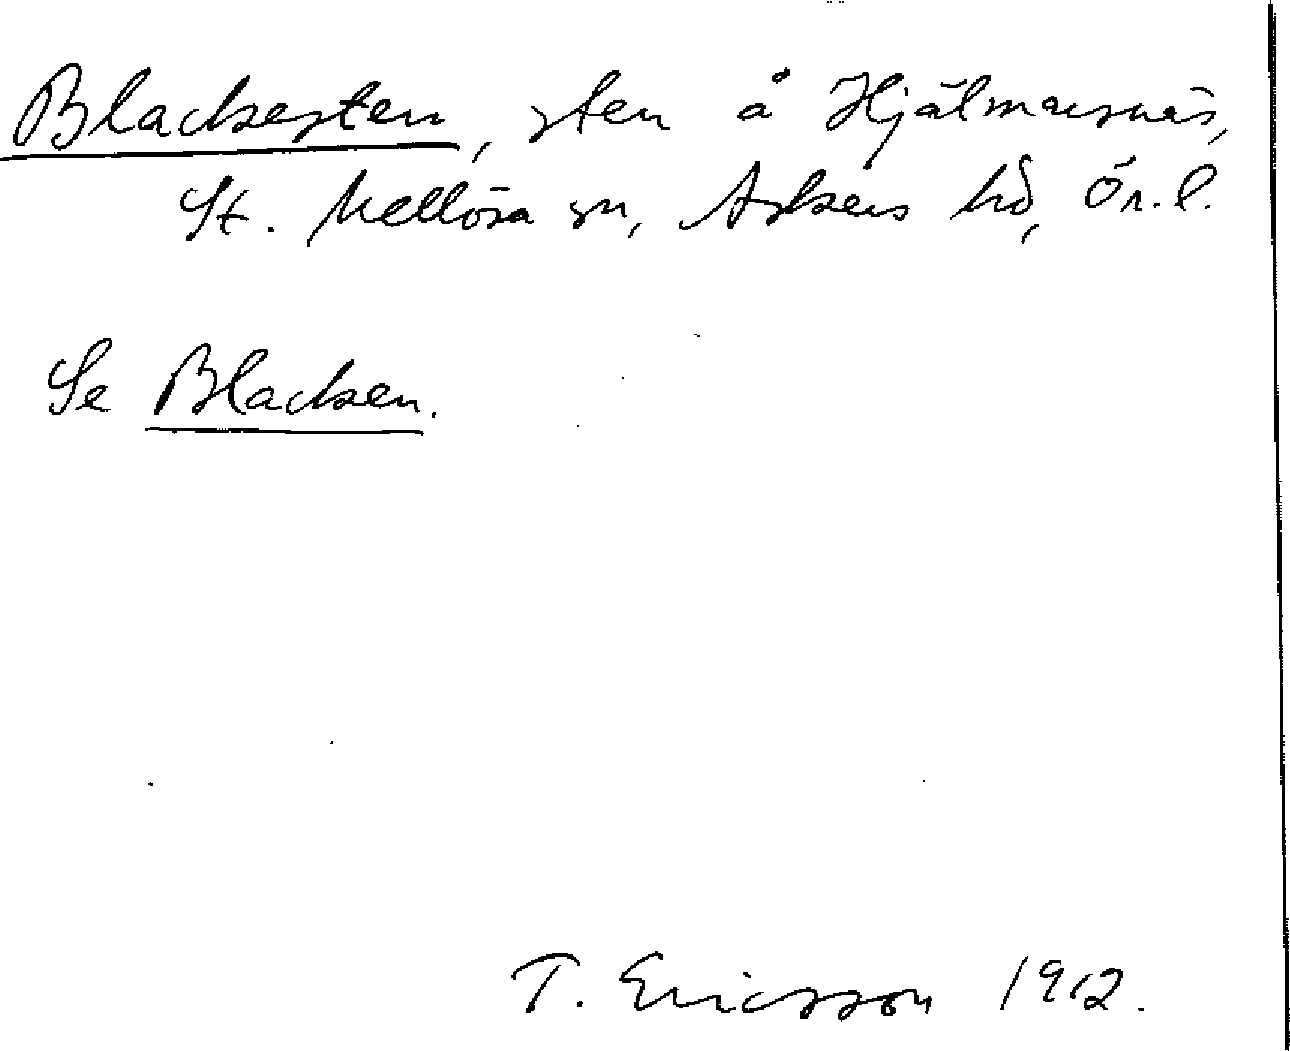 Blacksesten, sten å Hjälmarsnäs,
St. Mellösa sn, Askers hd, Ör. l.
Se Blacksen.
T. Ericsson 1912.